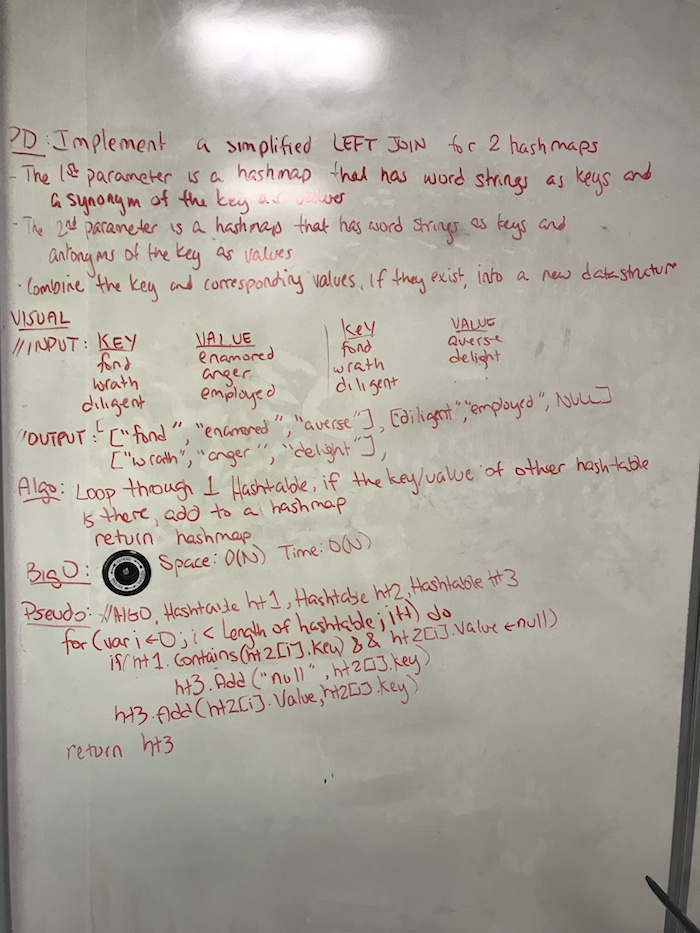 PD: Implement a simplified LEFT JOIN for 2 hashmaps
- The 1st parameter is a hashmap that has word strings as keys and
a synonym of the key as values
- The 2nd parameter is a hashmap that has word strings as keys and
antonyms of the key as values
- Combine the key and corresponding values, if they exist, into a new datastructure
VISUAL
//INPUT: KEY VALUE KEY VALUE
fond enamored fond averse
wrath anger wrath delight
diligent employed diligent
//OUTPUT: [ ["fond", "enamored", "averse"], [diligent", "employed", NULL]
["wrath", "anger", "delight"],
Algo: Loop through 1 Hashtable, if the key/value of other hashtable
is there, add to a hashmap
return hashmap
BigO: Space: O(N) Time: O(N)
Pseudo: //AlGO, Hashtable ht1, Hashtable ht2, Hashtable ht3
for (var i ← 0; i < Length of hashtable; i++) do
if(ht1.Contains(ht2[i].Key) && ht2[i].Value ← null)
ht3.Add("null", ht2[i].key)
ht3.Add(ht2[i].Value, ht2[i].key)
return ht3